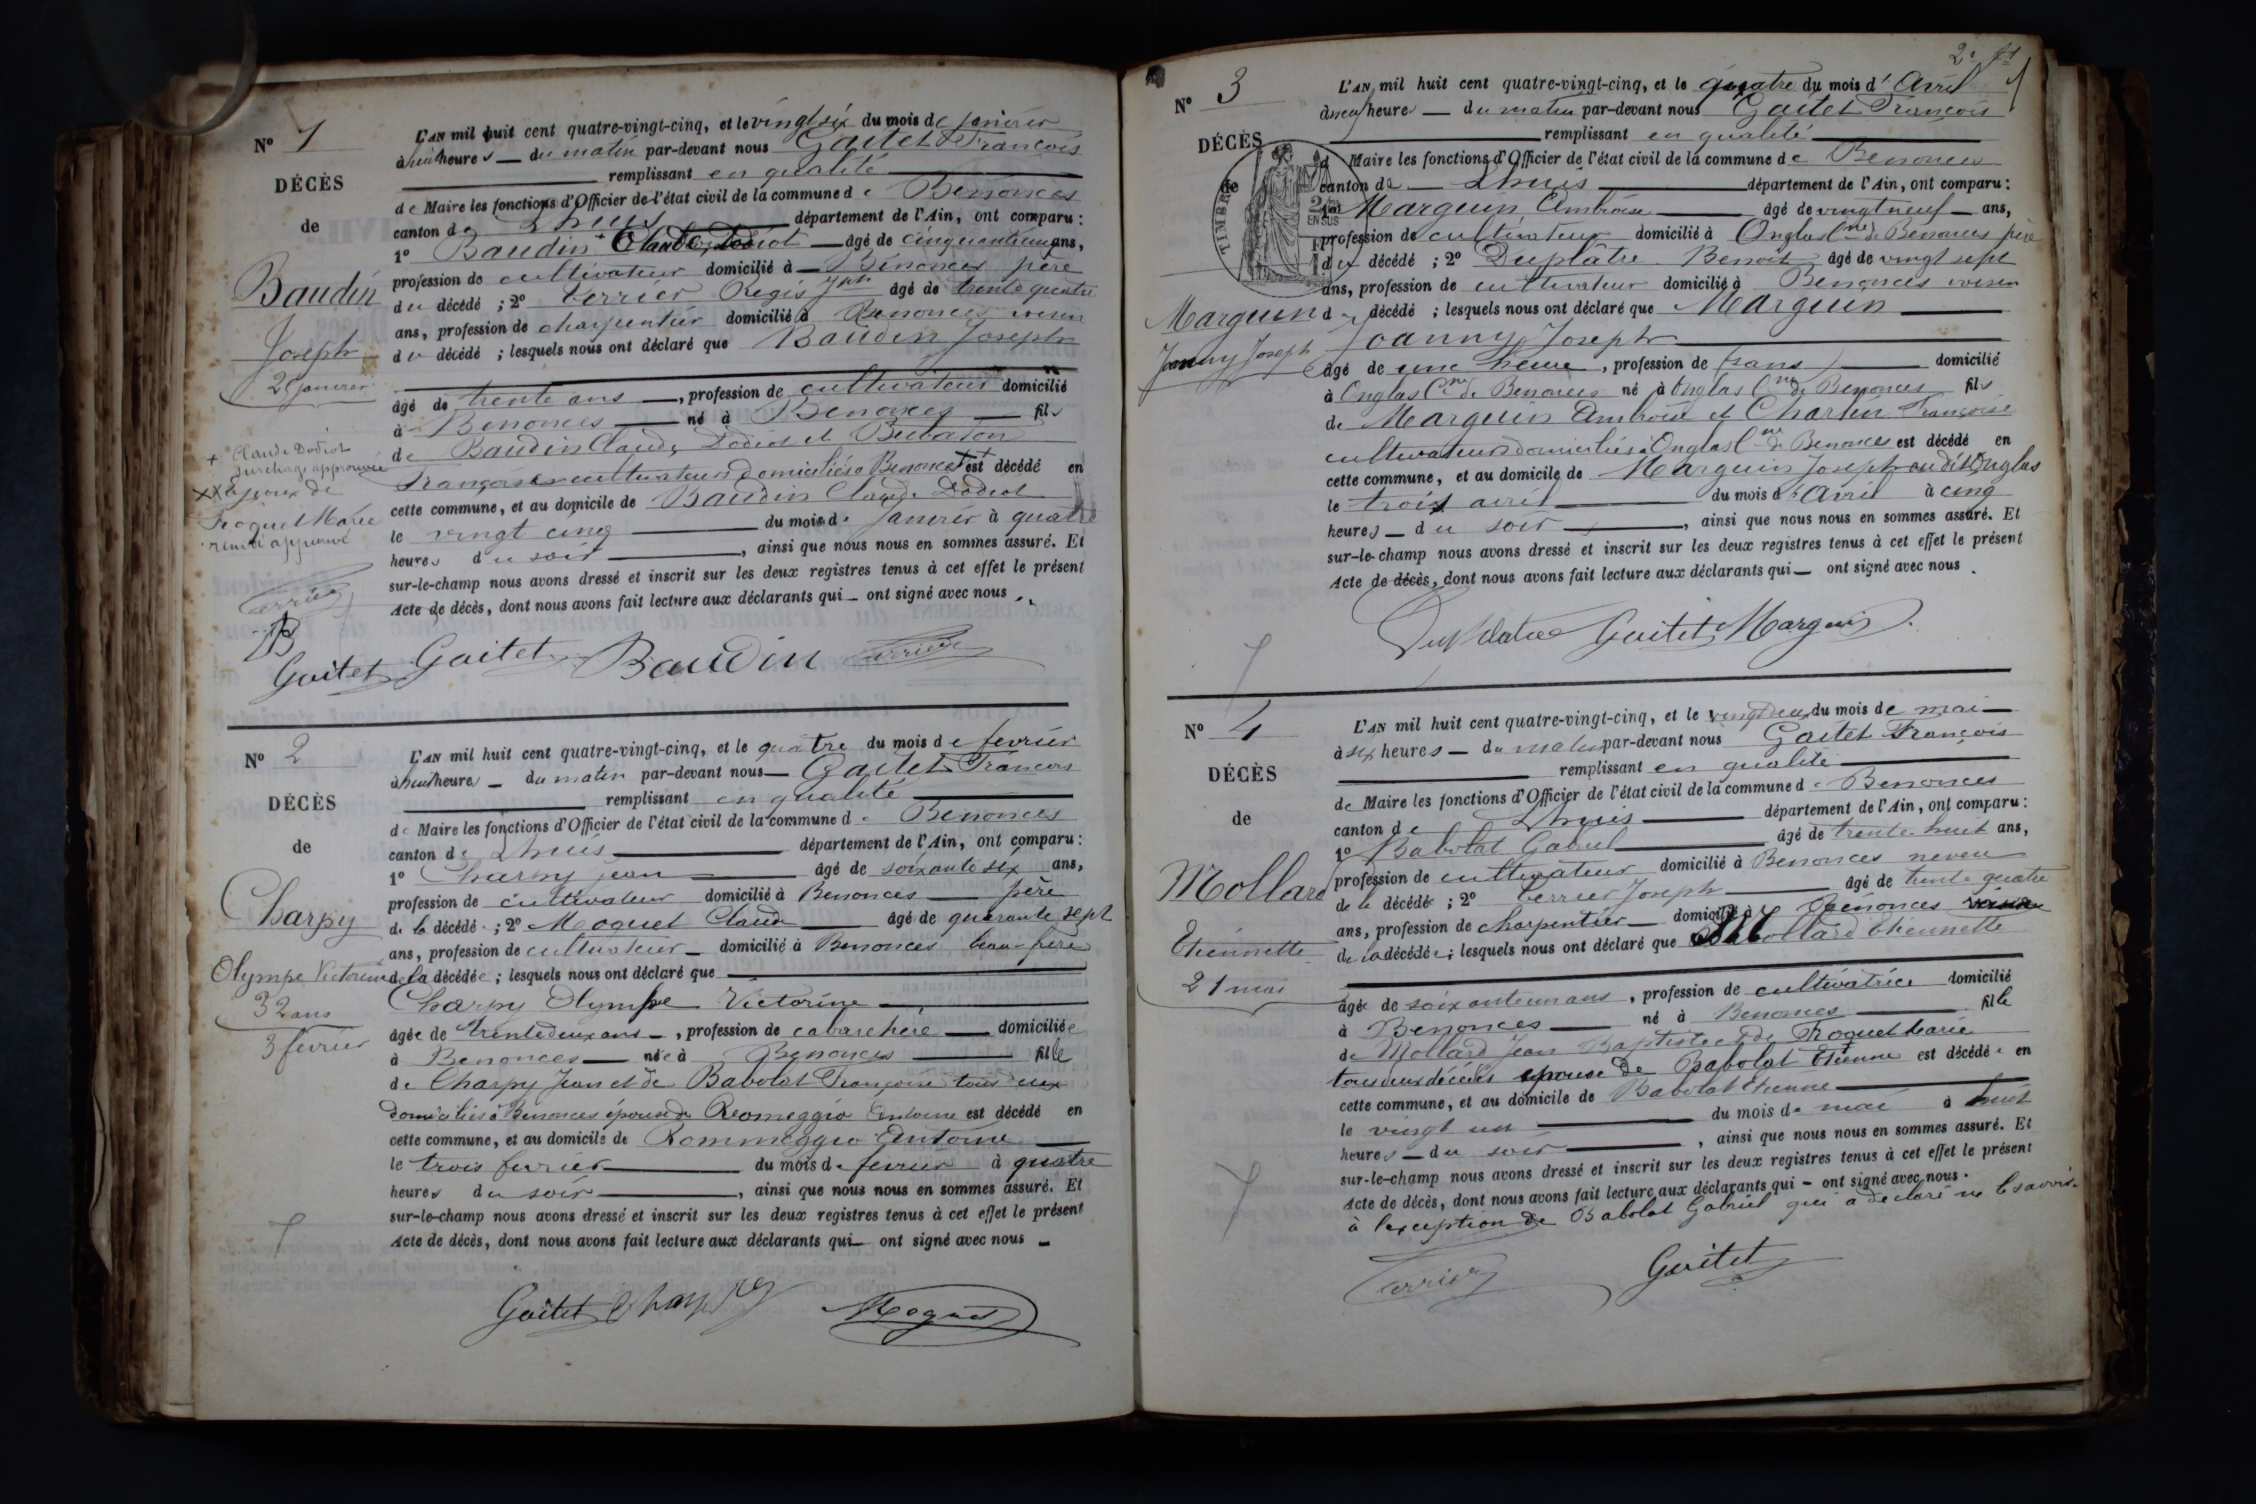 N° 1
DÉCÈS
de
Baudin
Joseph
25 janvier
+ Claude Dodiot
surcharge approuvée
XX époux de
Roquet Marie
renvoi approuvé
L'AN mil huit cent quatre-vingt-cinq, et le vingt six du mois de janvier
à huit heures — du matin par-devant nous Gaitet François
remplissant en qualité
de Maire les fonctions d'Officier de l'état civil de la commune de Benonces
canton de Lhuis département de l'Ain, ont comparu :
1° Baudin + Claude Dodiot âgé de cinquante un ans,
profession de cultivateur domicilié à Bénonces père
du décédé ; 2° Verrier Régis Jph âgé de trente quatre
ans, profession de charpentier domicilié à Benonces voisin
du décédé ; lesquels nous ont déclaré que Baudin Joseph
âgé de trente ans, profession de cultivateur domicilié
à Benonces né à Benonces fils
de Baudin Claude Dodiot et
Françoise cultivateurs domiciliés à Benonces est décédé en
cette commune, et au domicile de Baudin Claude Dodiot
le vingt cinq du mois de janvier à quatre
heures du soir, ainsi que nous nous en sommes assuré. Et
sur-le-champ nous avons dressé et inscrit sur les deux registres tenus à cet effet le présent
Acte de décès, dont nous avons fait lecture aux déclarants qui — ont signé avec nous.
B
Gaitet Gaitet Baudin Verrier
N° 2
DÉCÈS
de
Charpy
Olympe Victorine
32 ans
3 février
L'AN mil huit cent quatre-vingt-cinq, et le quatre du mois de fevrier
à huit heures — du matin par-devant nous — Gaitet François
remplissant en qualité
de Maire les fonctions d'Officier de l'état civil de la commune de Benonces
canton de Lhuis département de l'Ain, ont comparu :
1° Charpy jean âgé de soixante six ans,
profession de cultivateur domicilié à Benonces père
de la décédé ; 2° Moquet Claude âgé de quarante sept
ans, profession de cultivateur domicilié à Benonces beau-frère
de la décédée ; lesquels nous ont déclaré que
Charpy Olympe Victorine
âgée de trente deux ans, profession de cabaretière domiciliée
à Benonces née à Benonces fille
de Charpy Jean et de Babolat Françoise tous deux
domiciliés à Benonces épouse de Romeggio Antoine est décédé en
cette commune, et au domicile de Rommeggio Antoine
le trois fevrier du mois de fevrier à quatre
heures du soir, ainsi que nous nous en sommes assuré. Et
sur-le-champ nous avons dressé et inscrit sur les deux registres tenus à cet effet le présent
Acte de décès, dont nous avons fait lecture aux déclarants qui — ont signé avec nous —
Gaitet Charpy Moquet
N° 3
DÉCÈS
de
TIMBRE
2/10 EN SUS
Marguin
Joanny Joseph
L'AN mil huit cent quatre-vingt-cinq, et le quatre du mois d'Avril
à neuf heure — du matin par-devant nous Gaitet François
remplissant en qualité
d Maire les fonctions d'Officier de l'état civil de la commune de Benonces
canton de Lhuis département de l'Ain, ont comparu :
1° Marguin Ambroise âgé de vingt neuf ans,
profession de cultivateur domicilié à Onglas Cne de Benonces père
du décédé ; 2° Duplâtre Benoit âgé de vingt sept
ans, profession de cultivateur domicilié à Benonces voisin
d décédé ; lesquels nous ont déclaré que Marguin
Joanny Joseph
âgé de une heure, profession de (sans) domicilié
à Onglas Cne de Benonces né à Onglas Cne de Benonces fils
de Marguin Ambroise et Charlin Françoise
cultivateurs domiciliés à Onglas Cne de Benonces est décédé en
cette commune, et au domicile de Marguin Joseph au dit Onglas
le trois avril du mois d'Avril à cinq
heures — du soir, ainsi que nous nous en sommes assuré. Et
sur-le-champ nous avons dressé et inscrit sur les deux registres tenus à cet effet le présent
Acte de décès, dont nous avons fait lecture aux déclarants qui — ont signé avec nous.
Duplatre Gaitet Marguin
N° 4
DÉCÈS
de
Mollard
Etiennette
21 mai
L'AN mil huit cent quatre-vingt-cinq, et le vingt deux du mois de mai —
à six heures — du matin par-devant nous Gaitet François
remplissant en qualité
de Maire les fonctions d'Officier de l'état civil de la commune de Benonces
canton de Lhuis département de l'Ain, ont comparu :
1° Babolat Gabriel âgé de trente huit ans,
profession de cultivateur domicilié à Benonces neveu
de la décédée ; 2° Verrier Joseph âgé de trente quatre
ans, profession de charpentier domicilié à Benonces voisin
de la décédée ; lesquels nous ont déclaré que Mollard Etiennette
âgée de soixante un ans, profession de cultivatrice domicilié
à Benonces né à Benonces fille
de Mollard Jean Baptiste et de Roquet Marie
tous deux décédés epouse de Babolat Etienne est décédée en
cette commune, et au domicile de Babolat Etienne
le vingt un du mois de mai à huit
heures — du soir, ainsi que nous nous en sommes assuré. Et
sur-le-champ nous avons dressé et inscrit sur les deux registres tenus à cet effet le présent
Acte de décès, dont nous avons fait lecture aux déclarants qui — ont signé avec nous.
à l'exception de Babolat Gabriel qui a declaré ne le savoir.
Verrier Gaitet